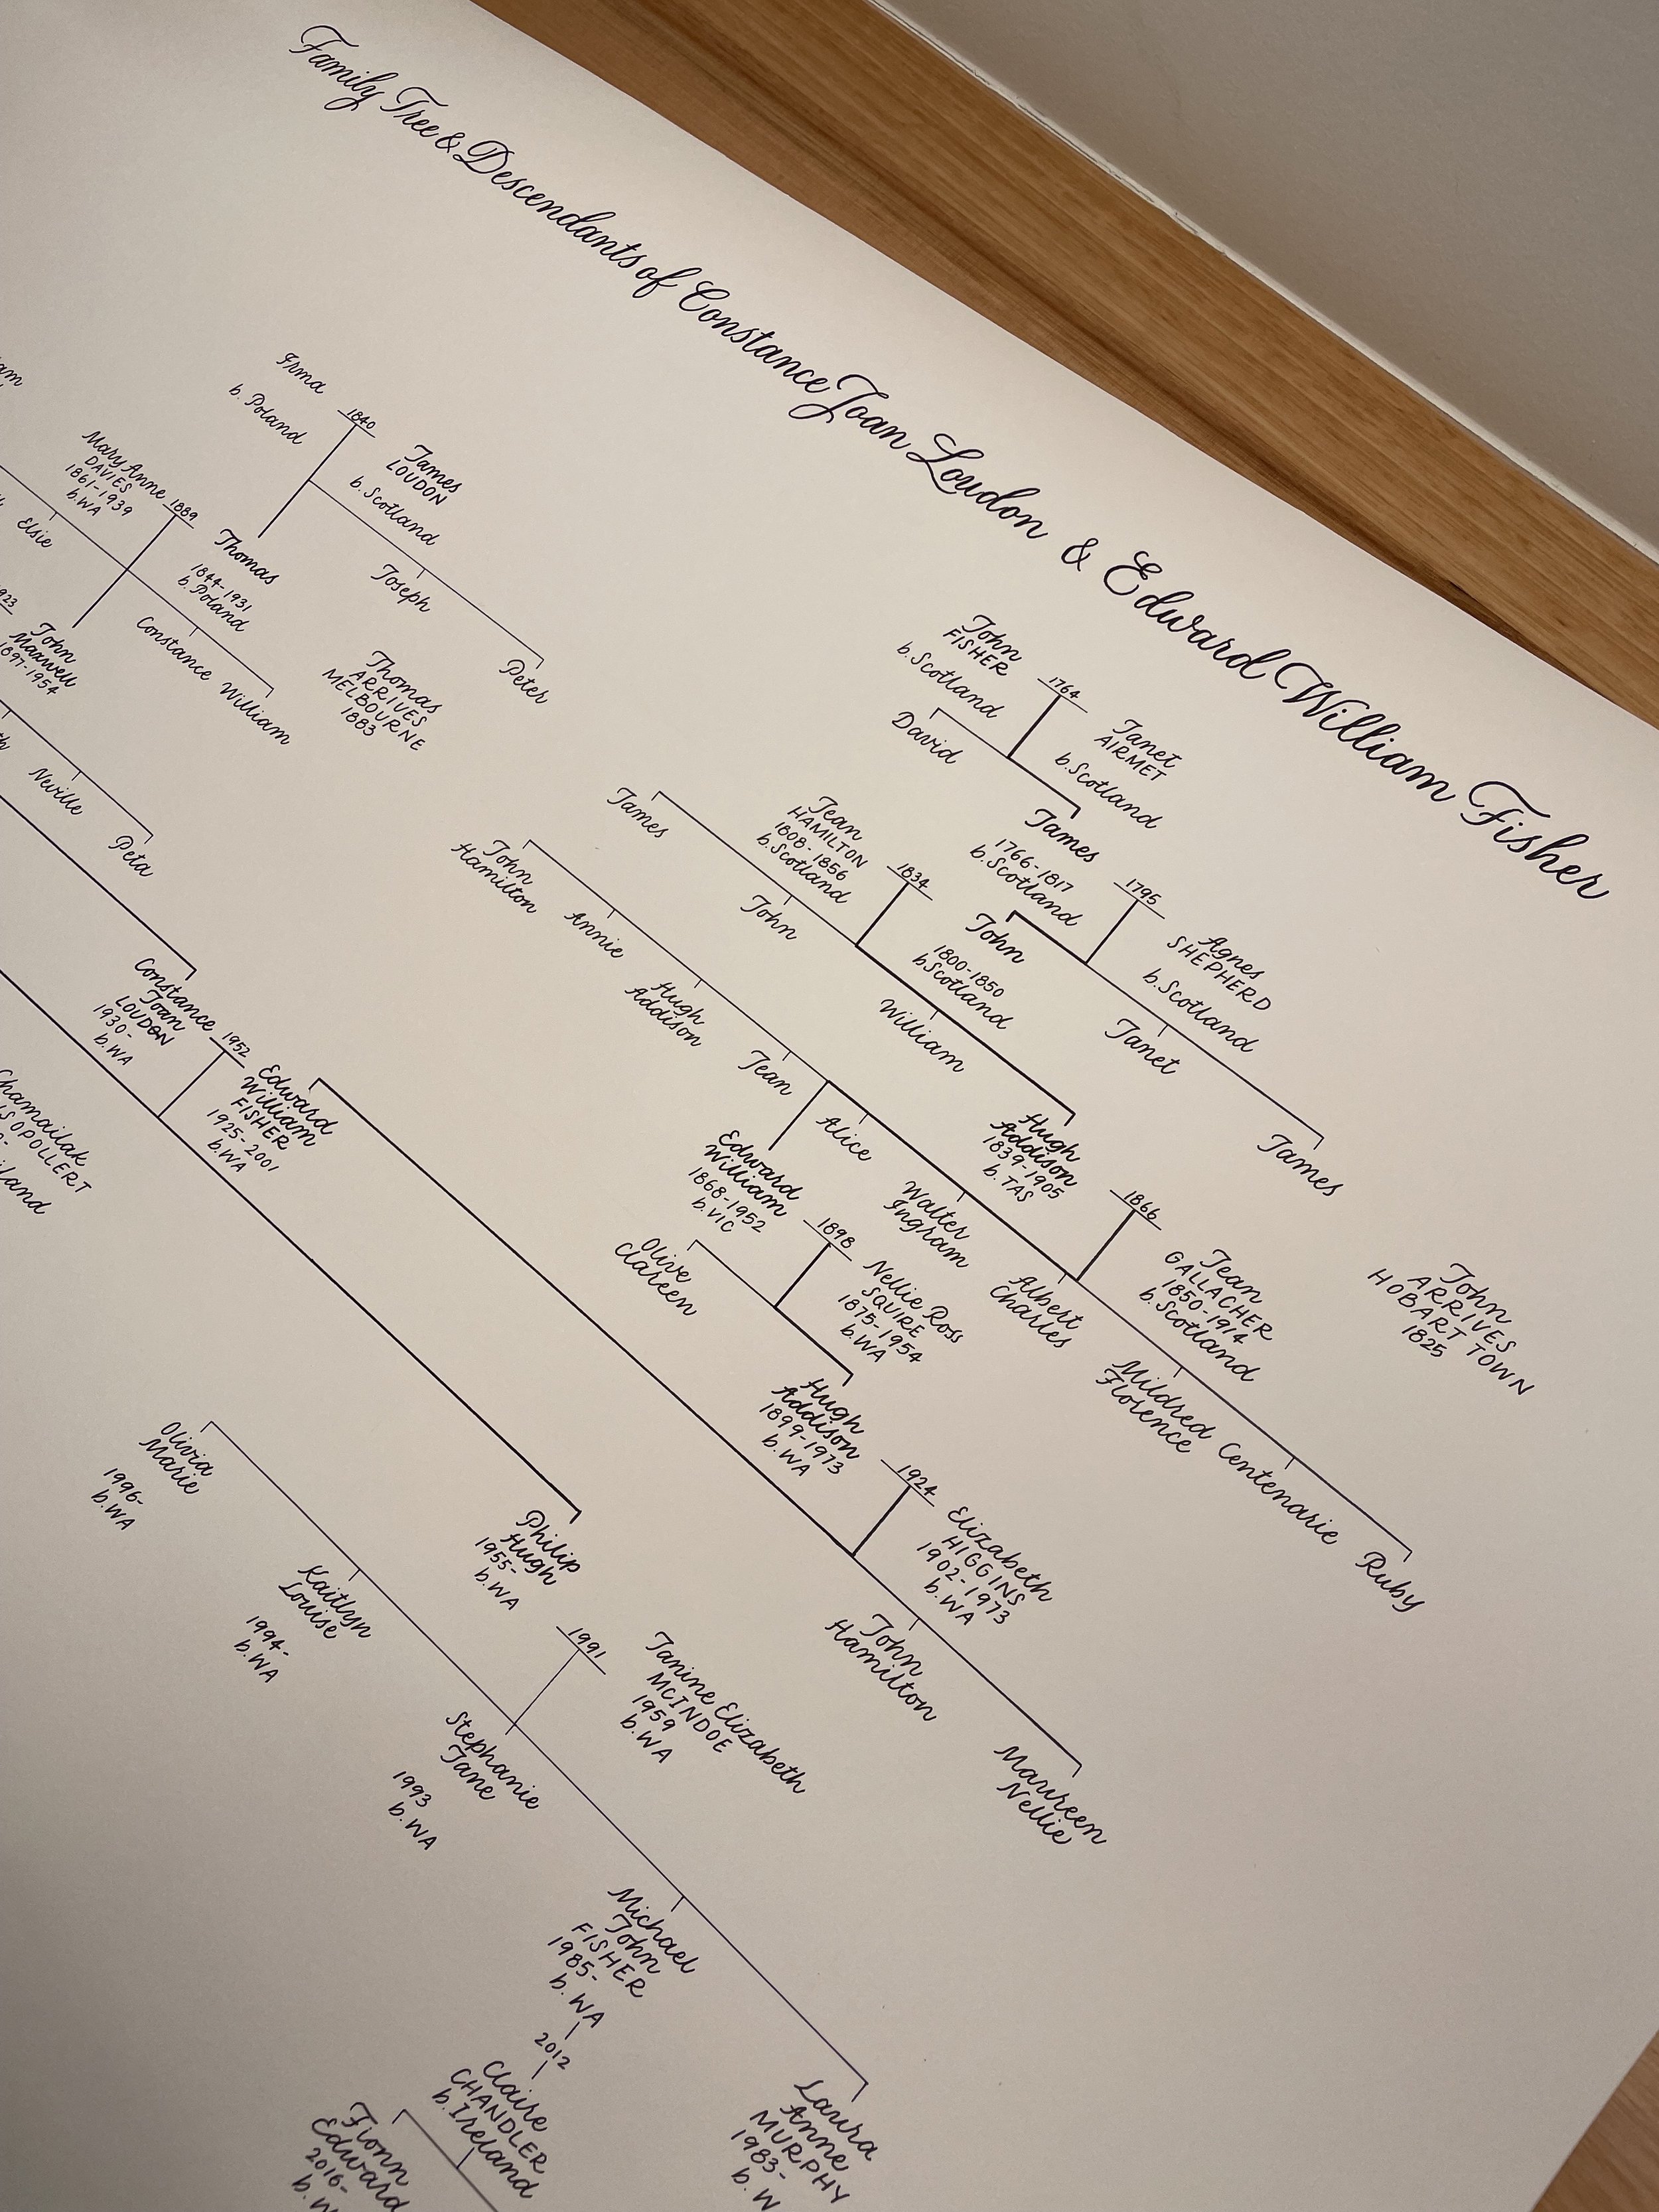 Family Tree & Descendants of Constance Joan Loudon & Edward William Fisher
Irma
b. Poland
1840
James
LOUDON
b. Scotland
Mary Anne
DAVIES
1861-1939
b. WA
1889
Thomas
1844-1931
b. Poland
Joseph
Peter
Elsie
John
Maxwell
1897-1954
Constance
William
Thomas
ARRIVES
MELBOURNE
1883
Neville
Peta
John
FISHER
b. Scotland
1764
Janet
AIRMET
b. Scotland
David
James
1766-1817
b. Scotland
1795
Agnes
SHEPHERD
b. Scotland
James
John
Jean
HAMILTON
1808-1856
b. Scotland
1834
John
1800-1850
b Scotland
Janet
James
William
Hugh
Addison
1839-1905
b. TAS
1866
Jean
GALLACHER
1850-1914
b. Scotland
John
ARRIVES
HOBART TOWN
1825
John
Hamilton
Annie
Hugh
Addison
Jean
Edward
William
1868-1952
b. VIC
Alice
Walter
Ingram
Albert
Charles
Mildred
Florence
Centenarie
Ruby
1898
Nellie Ross
SQUIRE
1875-1954
b. WA
Olive
Clareen
Hugh
Addison
1899-1973
b. WA
1924
Elizabeth
HIGGINS
1902-1973
b. WA
Constance
Joan
LOUDON
1930-
b. WA
1952
Edward
William
FISHER
1925-2001
b. WA
John
Hamilton
Maureen
Nellie
Chamailak
Philip
Hugh
1955-
b. WA
1991
Janine Elizabeth
MCINDOE
1959
b. WA
Olivia
Marie
1996-
b. WA
Kaitlyn
Louise
1994-
b. WA
Stephanie
Jane
1993
b. WA
Michael
John
FISHER
1985-
b. WA
2012
Claire
CHANDLER
b. Ireland
Laura
Anne
MURPHY
1983-
b. W
Fionn
Edward
2016-